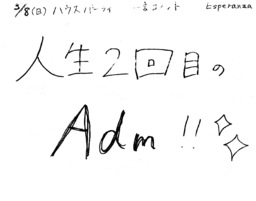 3/8(日) ハウスパーティ 一言コメント Esperanza
人生2回目の
Adm!!